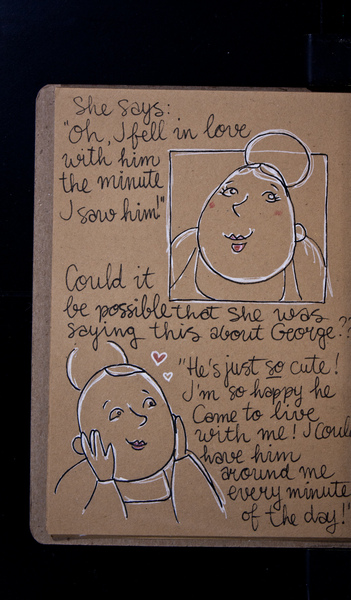 She says:
"Oh, I fell in love
with him
the minute
I saw him!"
Could it
be possible that she was
saying this about George??
"He's just so cute!
I'm so happy he
Came to live
with me! I could
have him
around me
every minute
of the day!"